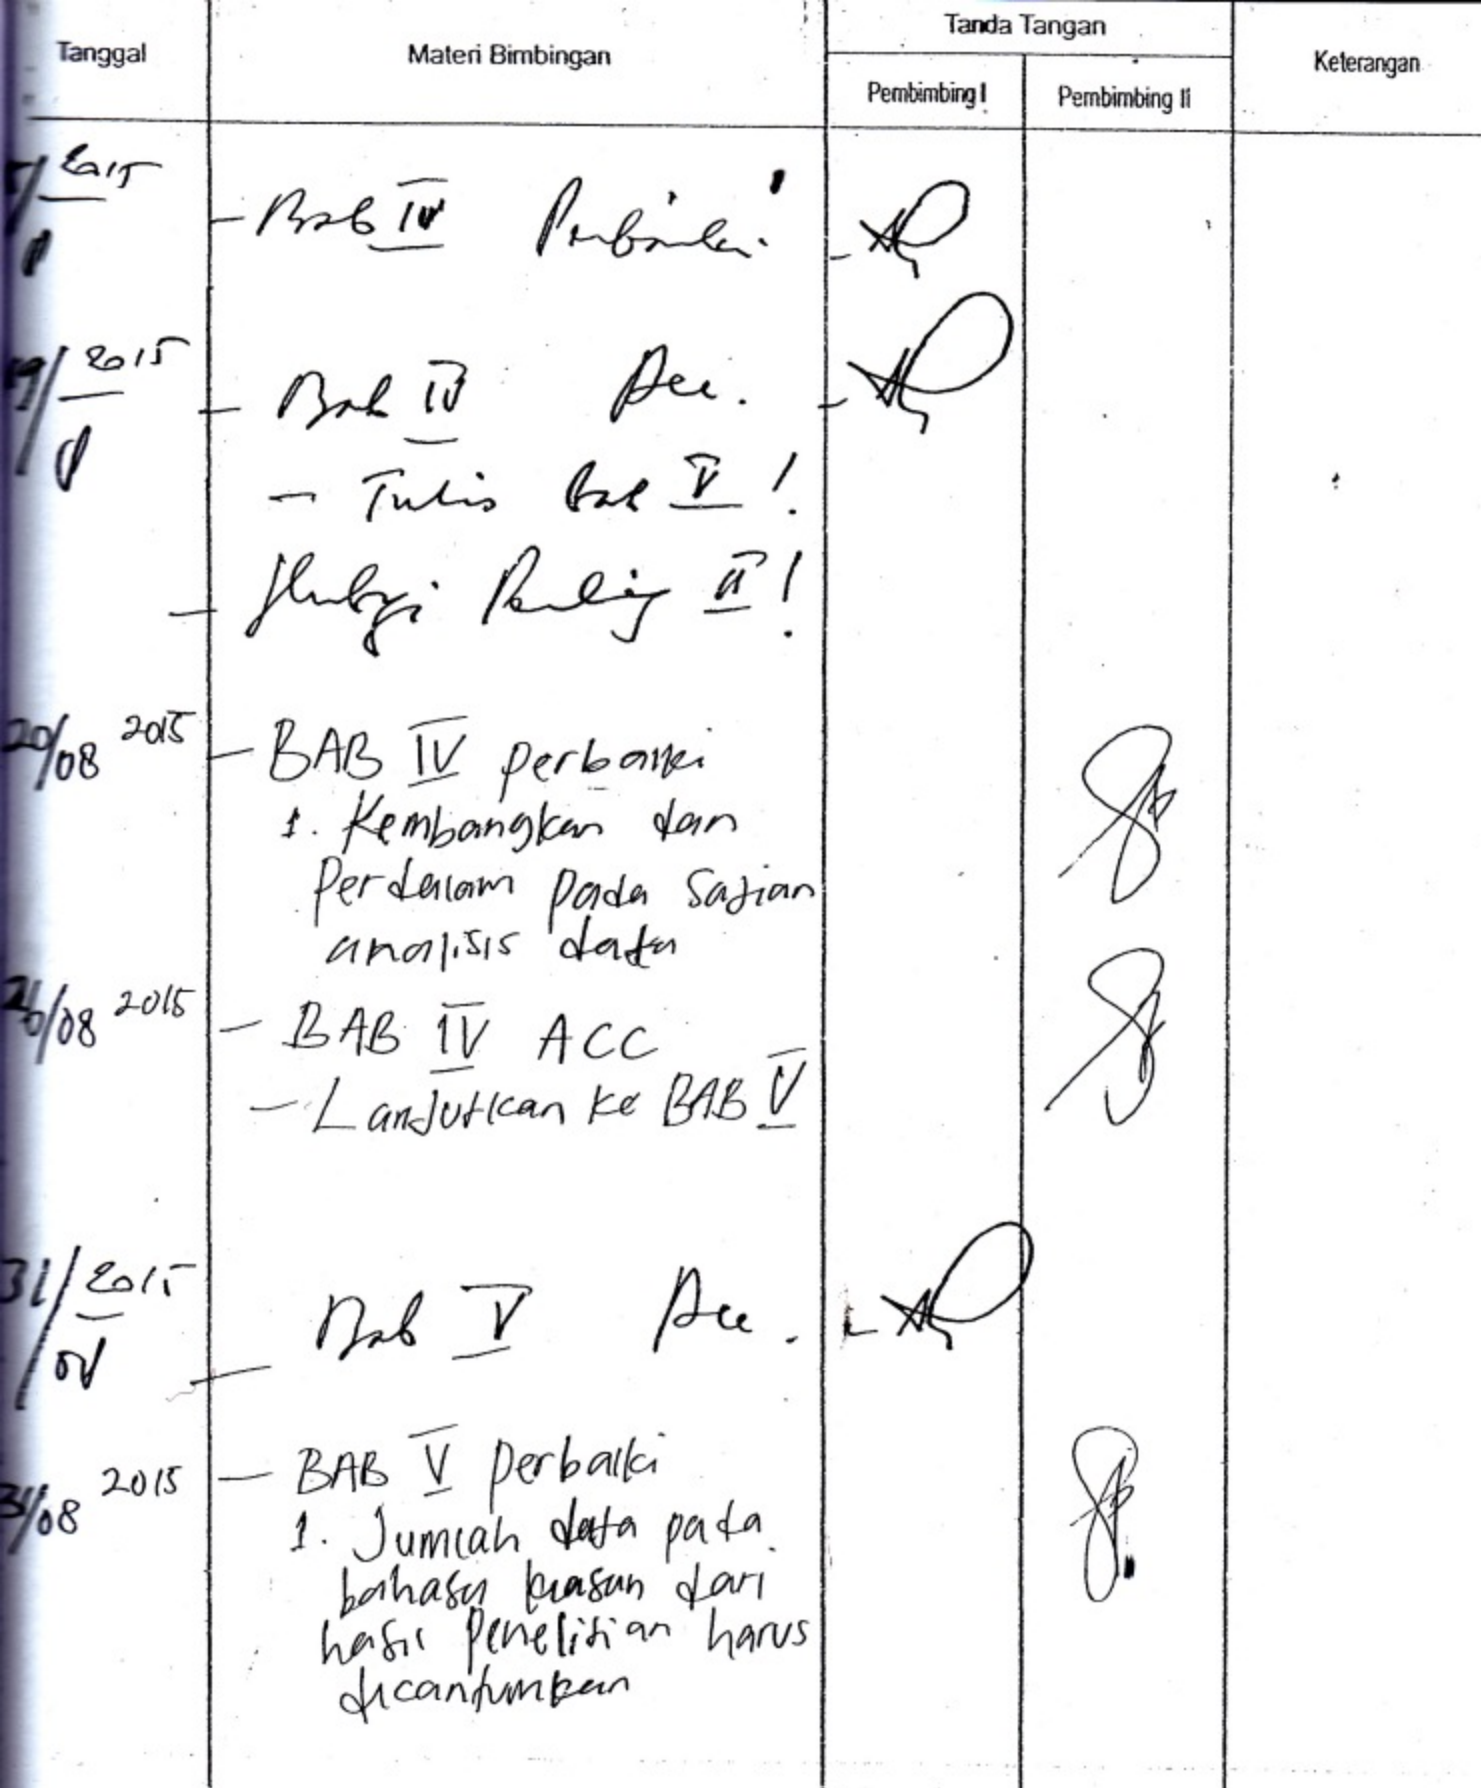 Tanggal
Materi Bimbingan
Tanda Tangan
Pembimbing I
Pembimbing II
Keterangan
2015
- Bab IV Perbaiki!
19/ 2015
- Bab IV Acc.
- Tulis Bab V!
- Hubungi II!
20/08 2015
- BAB IV perbaiki
1. Kembangkan dan
Perdalam pada Sajian
analisis data
26/08 2015
- BAB IV ACC
- Lanjutkan ke BAB V
31/ 2015
- Bab V Acc.
31/08 2015
- BAB V perbaiki
1. Jumlah data pada
bahasa kiasan dari
hasil Penelitian harus
dicantumkan